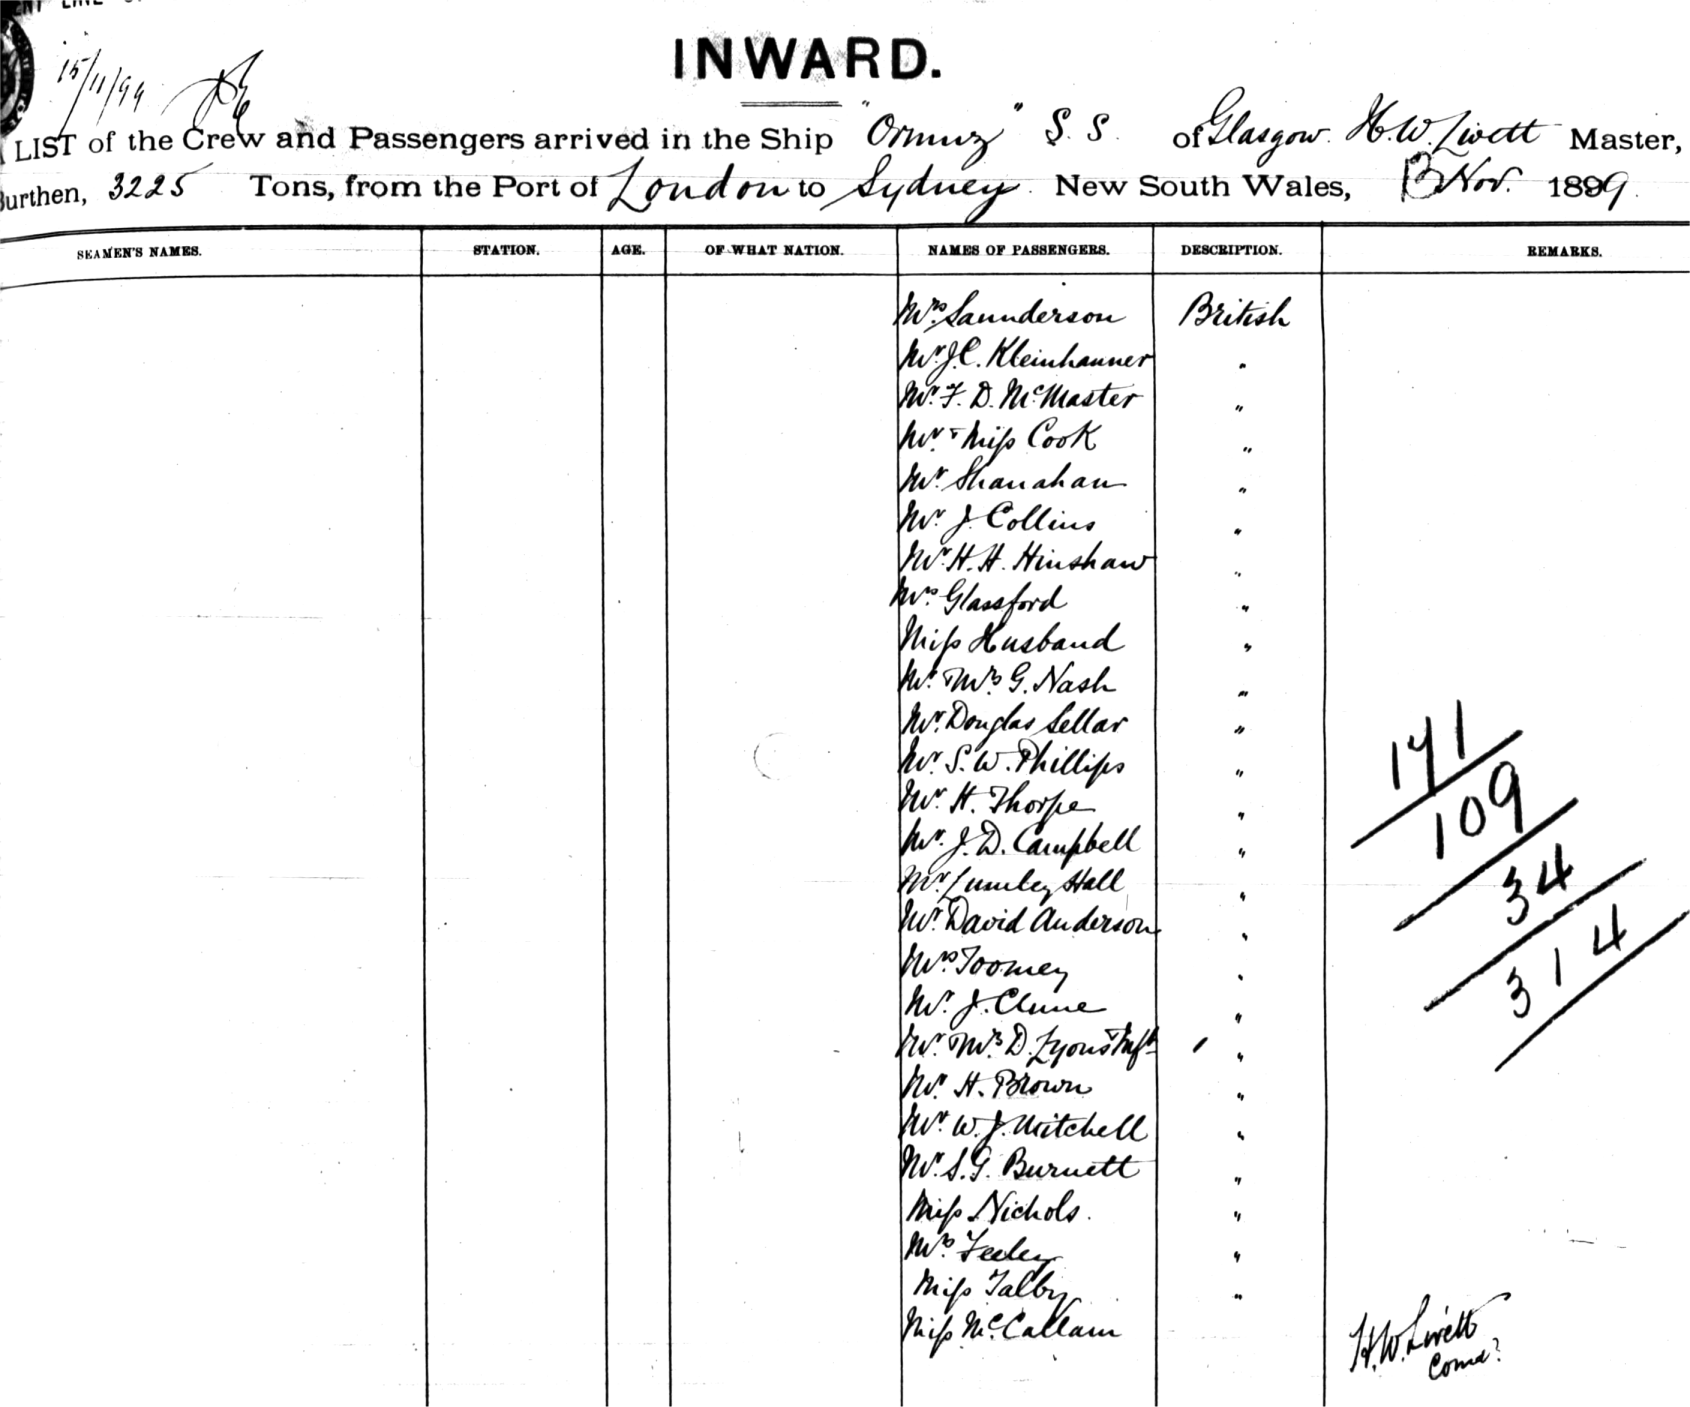 INWARD.
15/11/99
LIST of the Crew and Passengers arrived in the Ship "Ormuz" S.S. of Glasgow. H.W. Livett Master,
Burthen, 3225 Tons, from the Port of London to Sydney. New South Wales, 13 Nov. 1899.
SEAMEN'S NAMES. STATION. AGE. OF WHAT NATION. NAMES OF PASSENGERS. DESCRIPTION. REMARKS.
Mrs. Saunderson British
Mr. J.C. Kleinhanner "
Mr. F. D. McMaster "
Mr. + Miss Cook "
Mr. Shanahan "
Mr. J. Collins "
Mr. H. H. Hinshaw "
Mrs. Glassford "
Miss Husband "
Mr. + Mrs. G. Nash "
Mr. Douglas Sellar "
Mr. S. W. Phillips "
Mr. H. Thorpe "
Mr. J. D. Campbell "
Mr. Lumley Hall "
Mr. David Anderson "
Mrs. Toomey "
Mr. J. Clune "
Mr. + Mrs. D. Lyons + Inft "
Mr. H. Brown "
Mr. W. J. Mitchell "
Mr. S. G. Burnett "
Miss Nichols. "
Mrs. Feeley "
Miss Talby "
Miss McCallam
171
109
34
314
H.W. Livett
Comd.